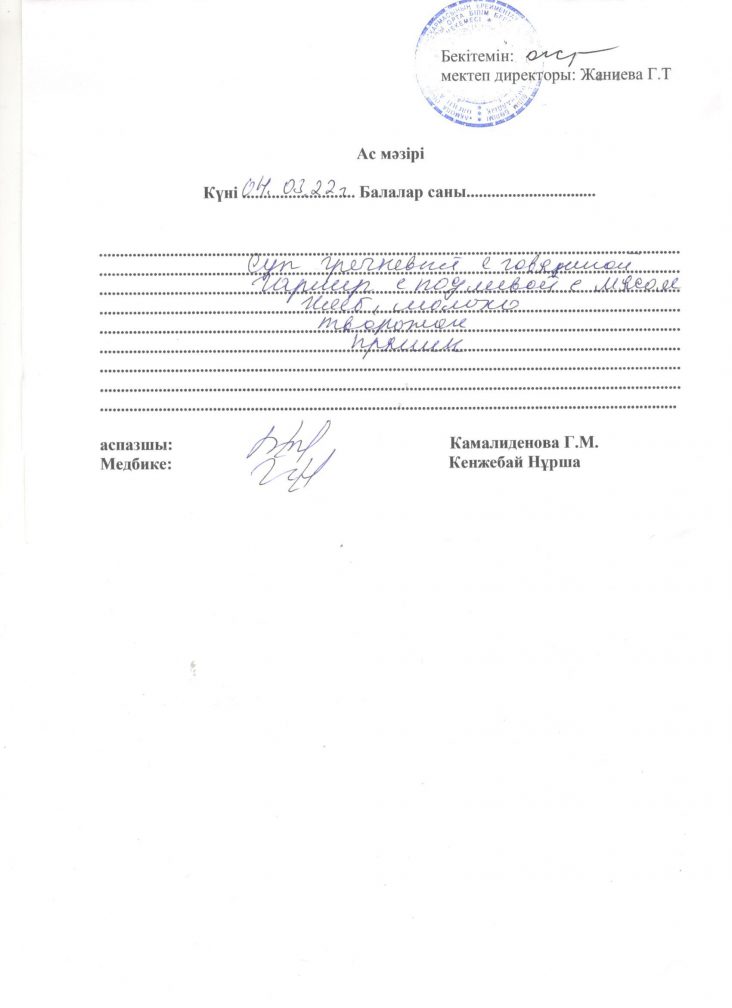 Бекітемін:
мектеп директоры: Жаниева Г.Т
Ас мәзірі
Күні 04.03.22г. Балалар саны
Суп гречневый с говядиной
Гарнир с подливой с мясом
Хлеб, молоко
творожок
пряник
аспазшы: Камалиденова Г.М.
Медбике: Кенжебай Нұрша